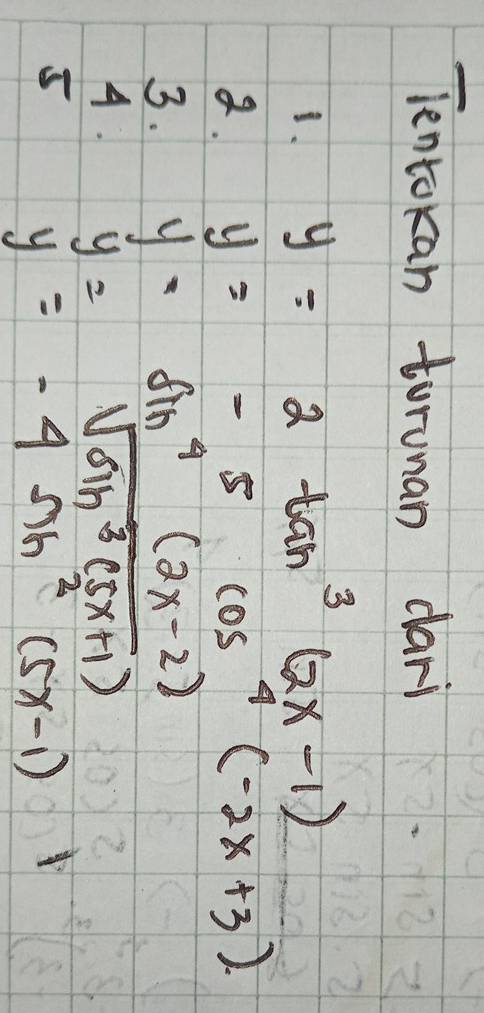 Tentukan turunan dari
1. y = 2 tan³ (2x - 1)
2. y = - 5 cos⁴ (-2x + 3).
3. y = sin⁴ (2x - 2)
4. y = √sin³ (5x+1)
5 y = - 4 sin² (5x - 1)